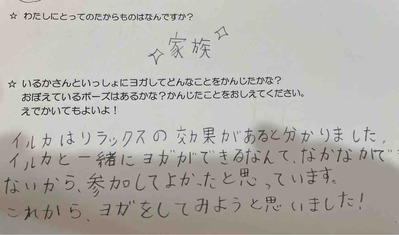 ☆ わたしにとってのたからものはなんですか？
家族
☆ いるかさんといっしょにヨガしてどんなことをかんじたかな？
おぼえているポーズはあるかな？かんじたことをおしえてください。
えでかいてもよいよ！
イルカはリラックスの効果があると分かりました。
イルカと一緒にヨガができるなんて、なかなかでき
ないから、参加してよかったと思っています。
これから、ヨガをしてみようと思いました！